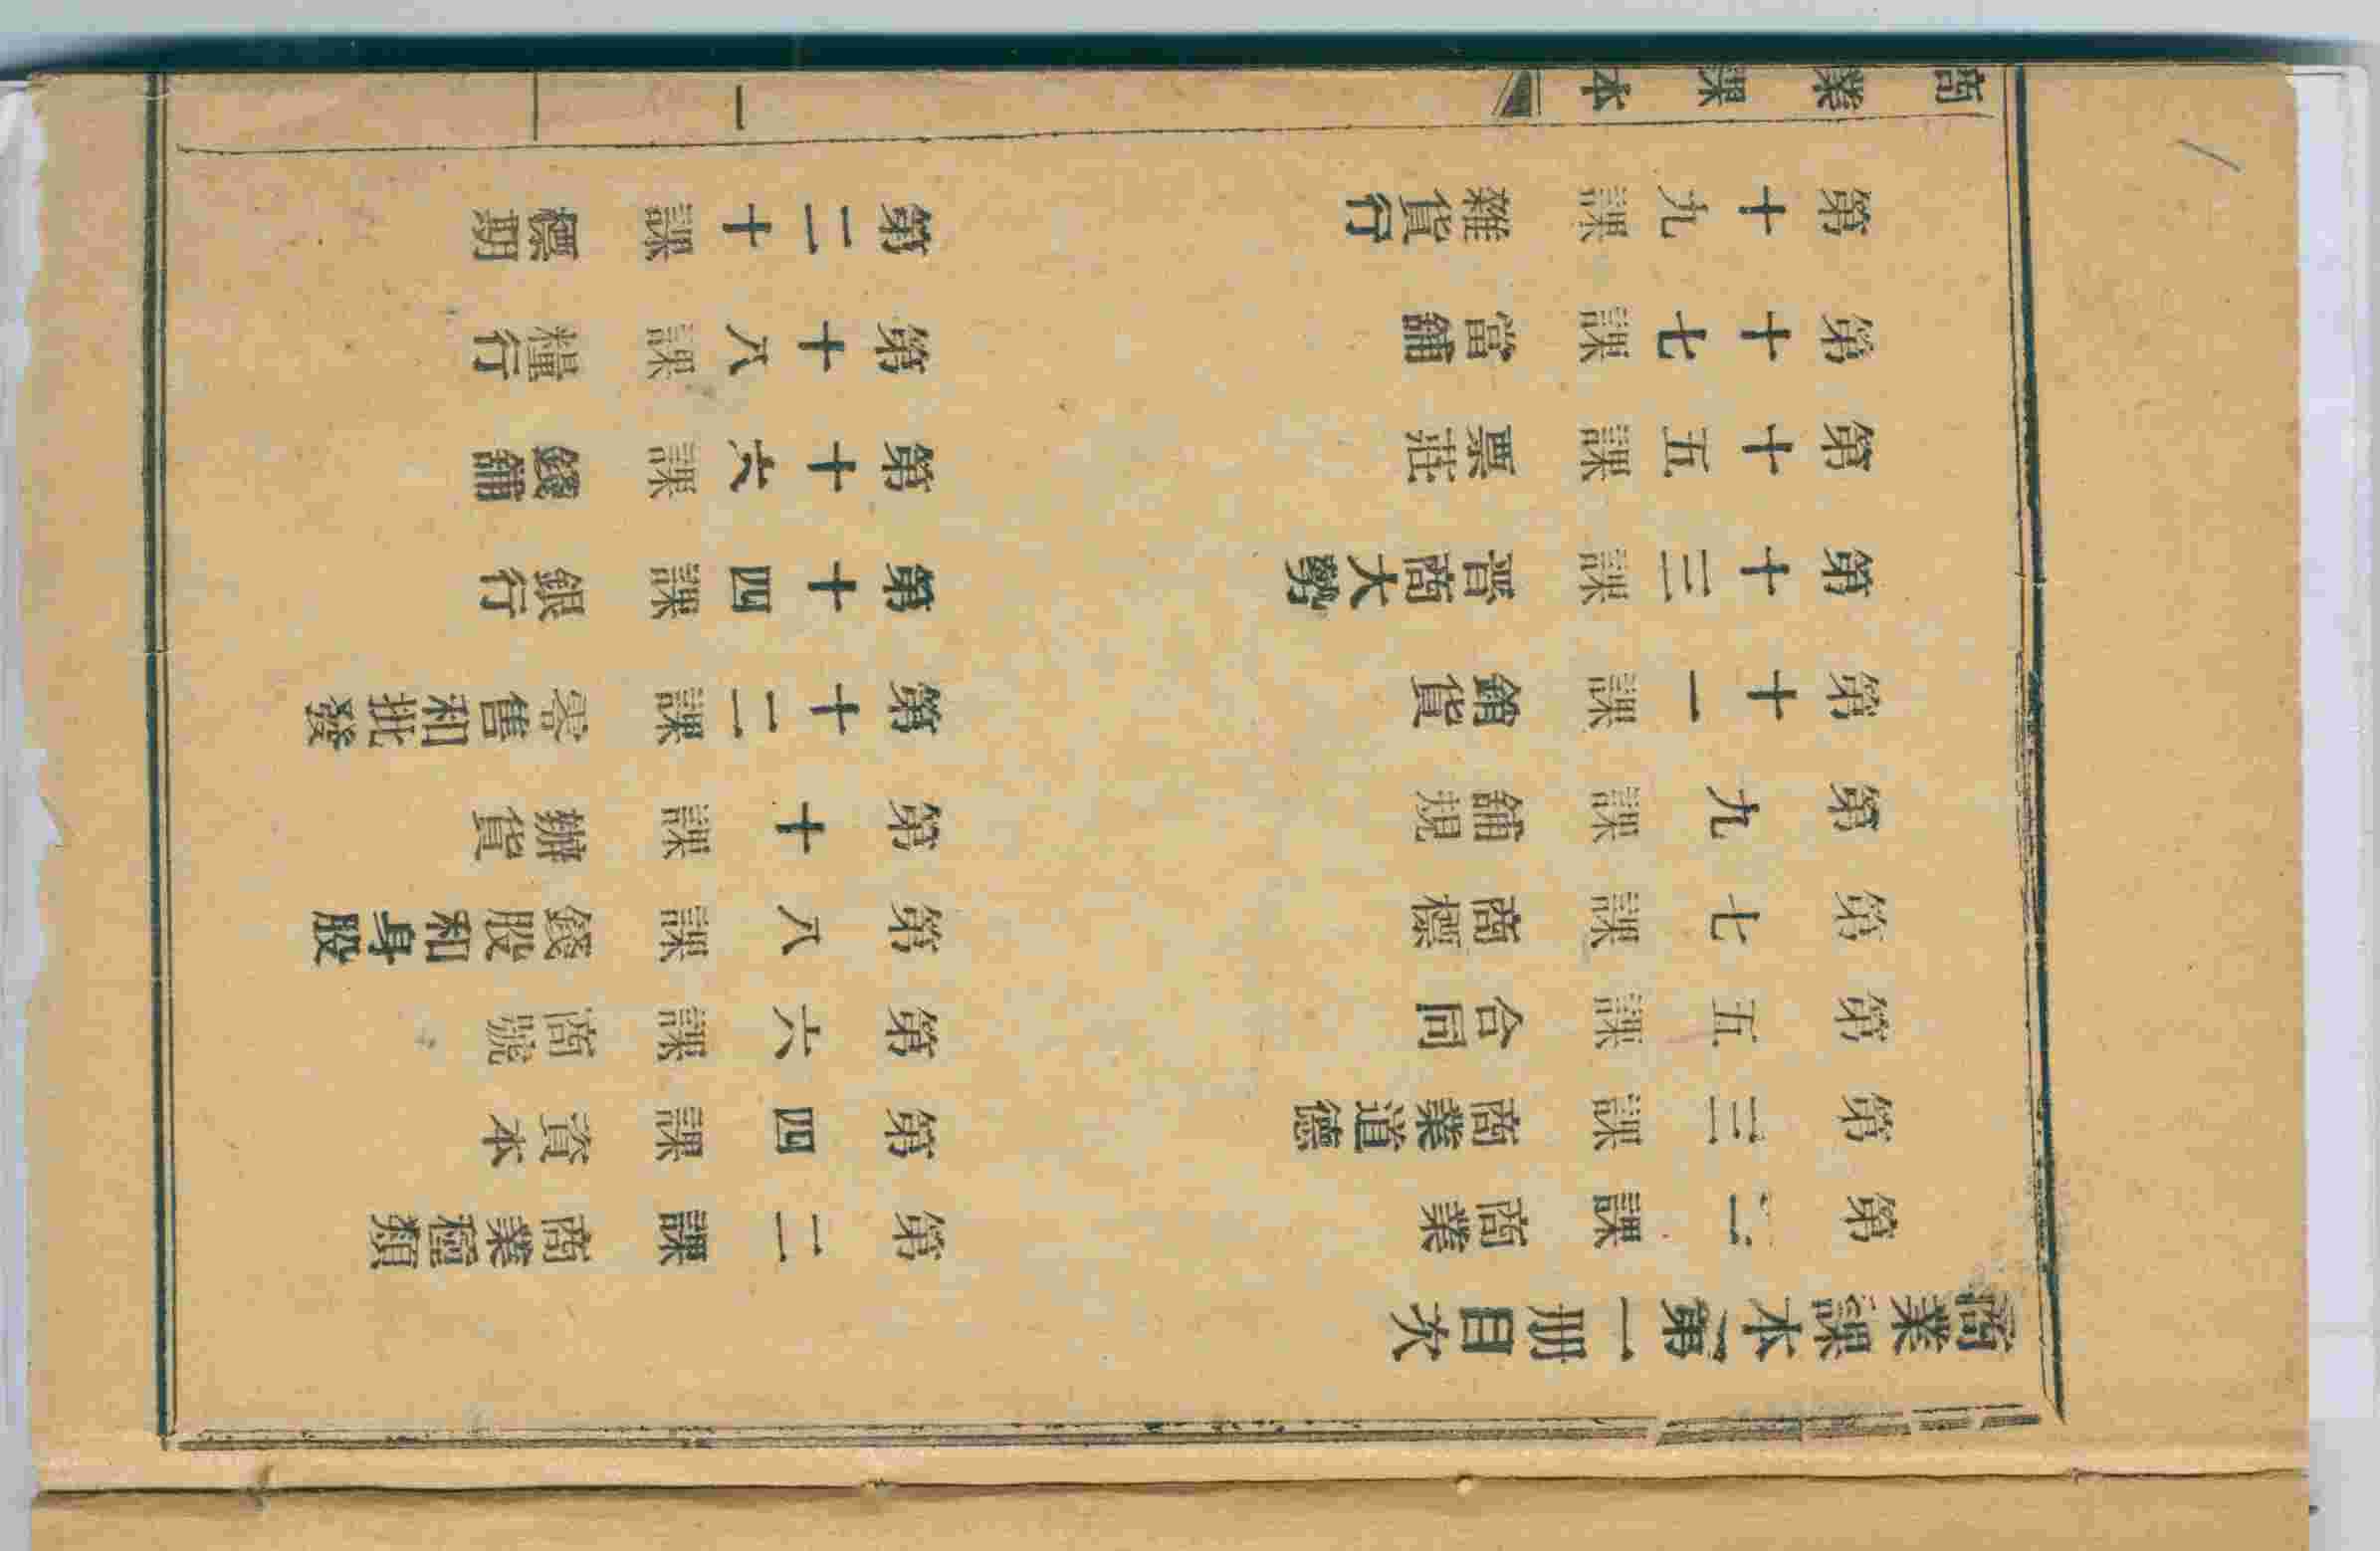 商業課本第一冊目次
第一課 商業 第二課 商業種類
第三課 商業道德 第四課 資本
第五課 合同 第六課 商號
第七課 商標 第八課 錢股和身股
第九課 舖規 第十課 辦貨
第十一課 銷貨 第十二課 零售和批發
第十三課 晉商大勢 第十四課 銀行
第十五課 票莊 第十六課 錢舖
第十七課 當舖 第十八課 糧行
第十九課 雜貨行 第二十課 標期
商業課本 一